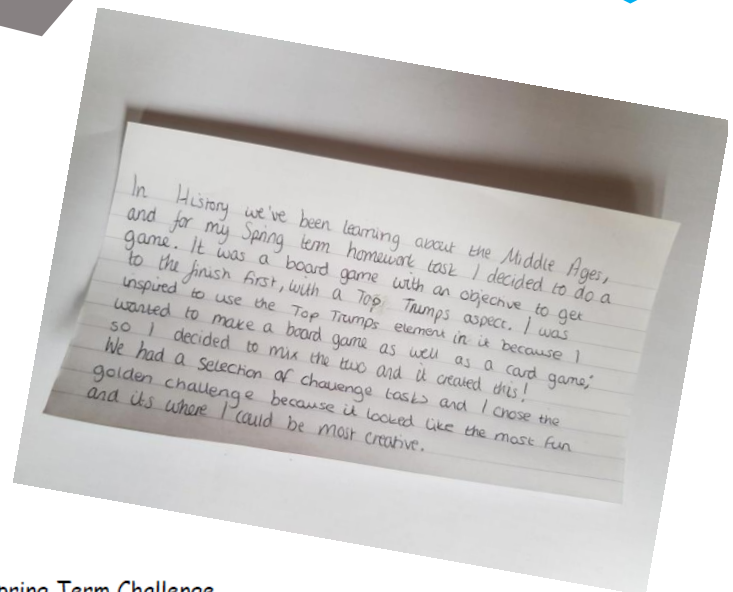 In History we've been learning about the Middle Ages,
and for my Spring term homework task I decided to do a
game. It was a board game with an objective to get
to the finish first, with a Top Trumps aspect. I was
inspired to use the Top Trumps element in it because I
wanted to make a board game as well as a card game;
so I decided to mix the two and it created this!
We had a selection of challenge tasks and I chose the
golden challenge because it looked like the most fun
and its where I could be most creative.
Spring Term Challenge